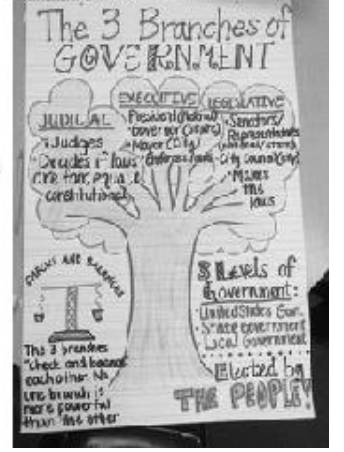 The 3 Branches of
GOVERNMENT
JUDICIAL
• Judges
• Decides if laws
are fair, equal &
constitutional
EXECUTIVE
• President (national)
Governor (state)
• Mayor (City)
• Enforces laws
LEGISLATIVE
• Senators/
Representatives
(national/state)
• City Council (city)
• Makes
the
laws
CHECKS AND BALANCES
The 3 branches
"check and balance"
each other. No
one branch is
more powerful
than the other
3 Levels of
Government:
• United States Gov.
• State Government
• Local Government
Elected by
THE PEOPLE!